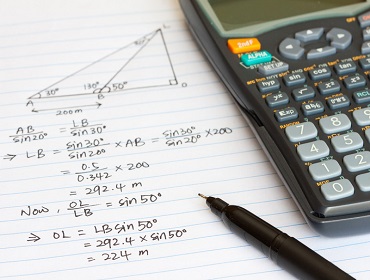 L
30° 130° 50°
A B O
200m
AB/sin20° = LB/sin30°
⇒ LB = sin30°/sin20° × AB = sin30°/sin20° × 200
= 0.5/0.342 × 200
= 292.4 m
Now, OL/LB = sin50°
⇒ OL = LB sin50°
= 292.4 × sin50°
= 224 m
ALPHA
hyp sin cos tan
Exp
7 8
4 5
1 2
0